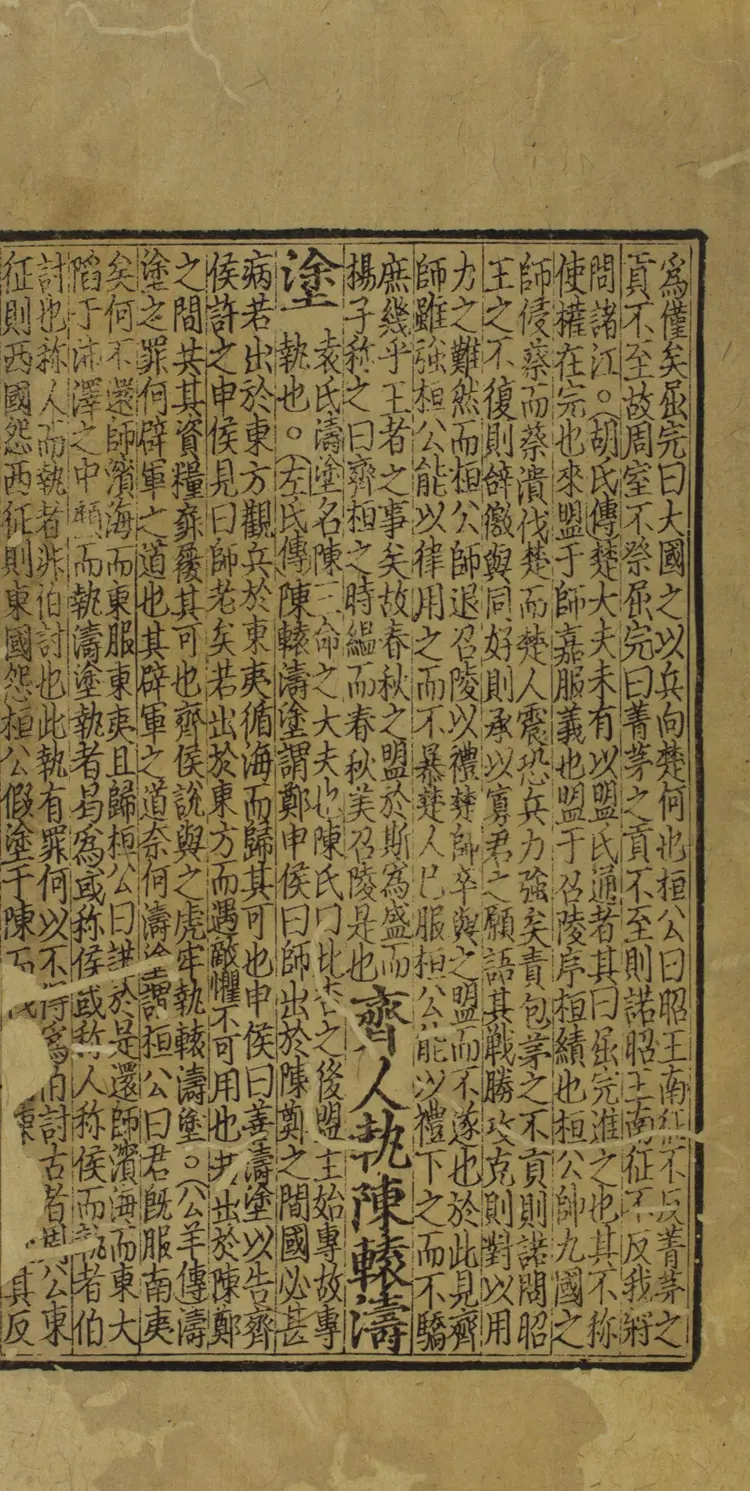 爲僅矣屈完曰大國之以兵向楚何也桓公曰昭王南征不反菁茅之
貢不至故周室不祭屈完曰菁茅之貢不至則諾昭王南征不反我將
問諸江○胡氏傳楚大夫未有以盟氏通者其曰屈完進之也其不称
使權在完也來盟于師嘉服義也盟于召陵序桓績也桓公帥九國之
師侵蔡而蔡潰伐楚而楚人震恐兵力強矣責包茅之不貢則諾問昭
王之不復則辭徼與同好則承以寡君之願語其戰勝攻克則對以用
力之難然而桓公師退召陵以禮楚師卒與之盟而不遂也於此見齊
師雖強桓公能以律用之而不暴楚人已服桓公能以禮下之而不驕
庶幾乎王者之事矣故春秋之盟於斯爲盛而
揚子称之曰齊桓之時緼而春秋美召陵是也
齊人執陳轅濤
塗
袁氏濤塗名陳三命之大夫也陳氏曰此之後盟主始專故專
執也○左氏傳陳轅濤塗謂鄭申侯曰師出於陳鄭之間國必甚
病若出於東方觀兵於東夷循海而歸其可也申侯曰善濤塗以告齊
侯許之申侯見曰師老矣若出於東方而遇敵懼不可用也若出於陳鄭
之間共其資糧屝屨其可也齊侯說與之虎牢執轅濤塗○公羊傳濤
塗之罪何辟軍之道也其辟軍之道奈何濤塗謂桓公曰君既服南夷
矣何不還師濱海而東服東夷且歸桓公曰諾於是還師濱海而東大
陷于沛澤之中顧而執濤塗執者曷爲或称侯或称人称侯而執者伯
討也称人而執者非伯討也此執有罪何以不得爲伯討古者周公東
征則西國怨西征則東國怨桓公假塗于陳而伐其反